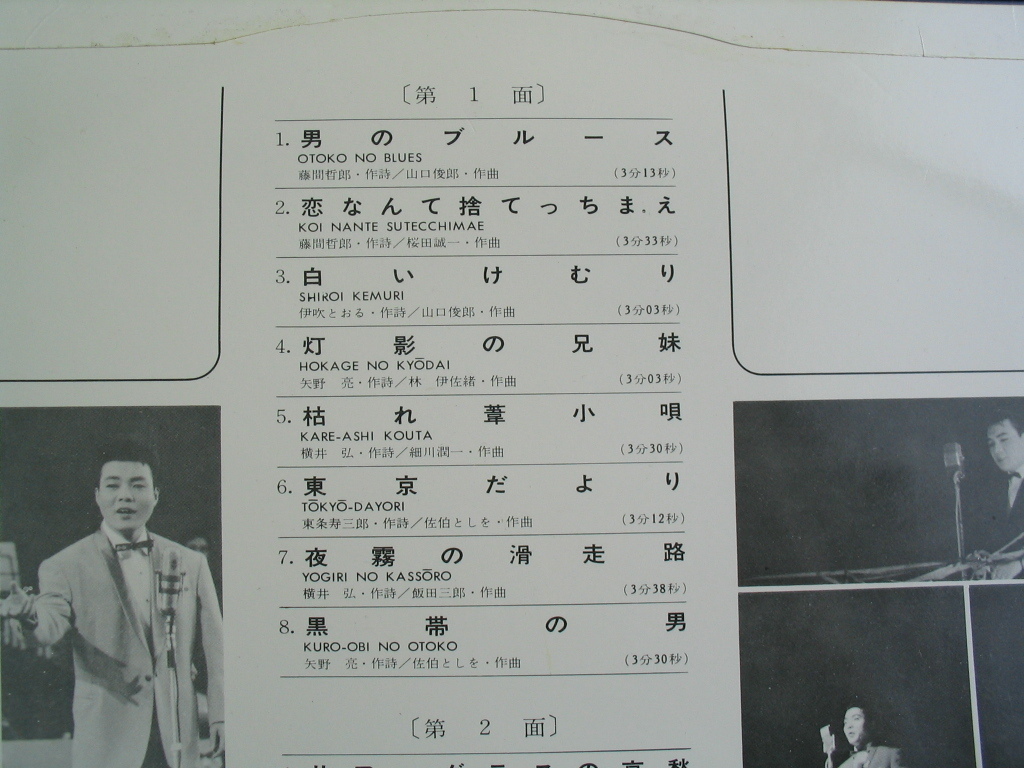 〔第 1 面〕
1. 男のブルース
OTOKO NO BLUES
藤間哲郎・作詩／山口俊郎・作曲 (3分13秒)
2. 恋なんて捨てっちまえ
KOI NANTE SUTECCHIMAE
藤間哲郎・作詩／桜田誠一・作曲 (3分33秒)
3. 白いけむり
SHIROI KEMURI
伊吹とおる・作詩／山口俊郎・作曲 (3分03秒)
4. 灯影の兄妹
HOKAGE NO KYŌDAI
矢野 亮・作詩／林 伊佐緒・作曲 (3分03秒)
5. 枯れ葦小唄
KARE-ASHI KOUTA
横井 弘・作詩／細川潤一・作曲 (3分30秒)
6. 東京だより
TŌKYŌ-DAYORI
東条寿三郎・作詩／佐伯としを・作曲 (3分12秒)
7. 夜霧の滑走路
YOGIRI NO KASSŌRO
横井 弘・作詩／飯田三郎・作曲 (3分38秒)
8. 黒帯の男
KURO-OBI NO OTOKO
矢野 亮・作詩／佐伯としを・作曲 (3分30秒)
〔第 2 面〕